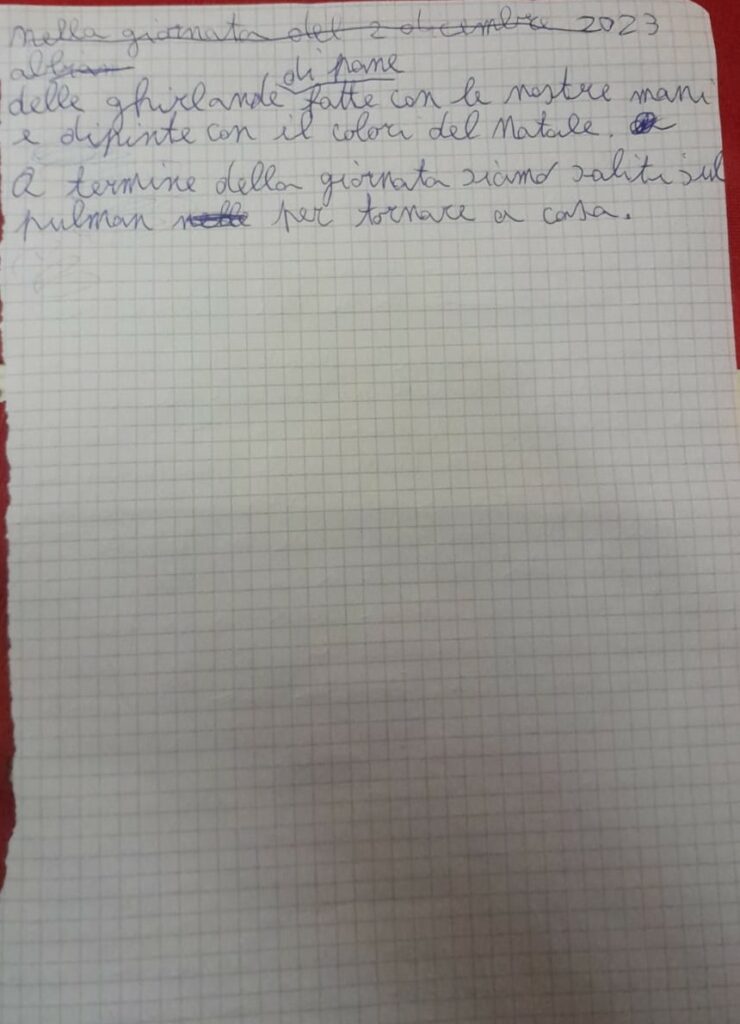 nella giornata del 2 dicembre 2023
di pane
delle ghirlande fatte con le nostre mani
e dipinte con il colori del Natale.
A termine della giornata siamo saliti sul
pulman nelle per tornare a casa.